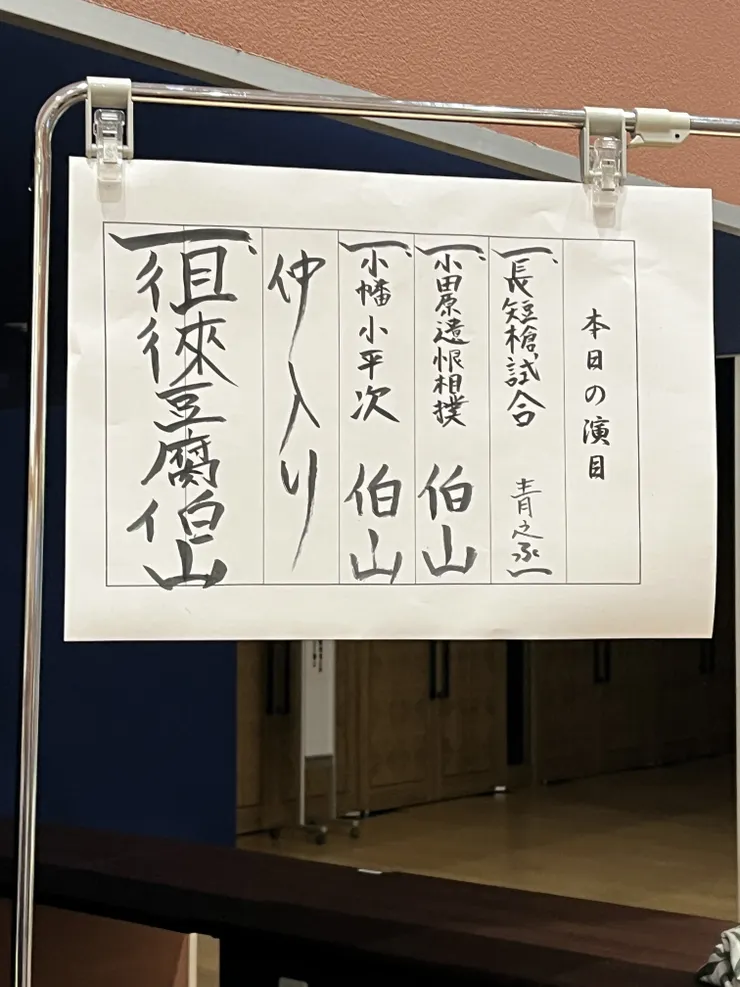 本日の演目
一、長短槍試合 青之丞
一、小田原遺恨相撲 伯山
一、小幡小平次 伯山
仲入り
一、徂徠豆腐 伯山